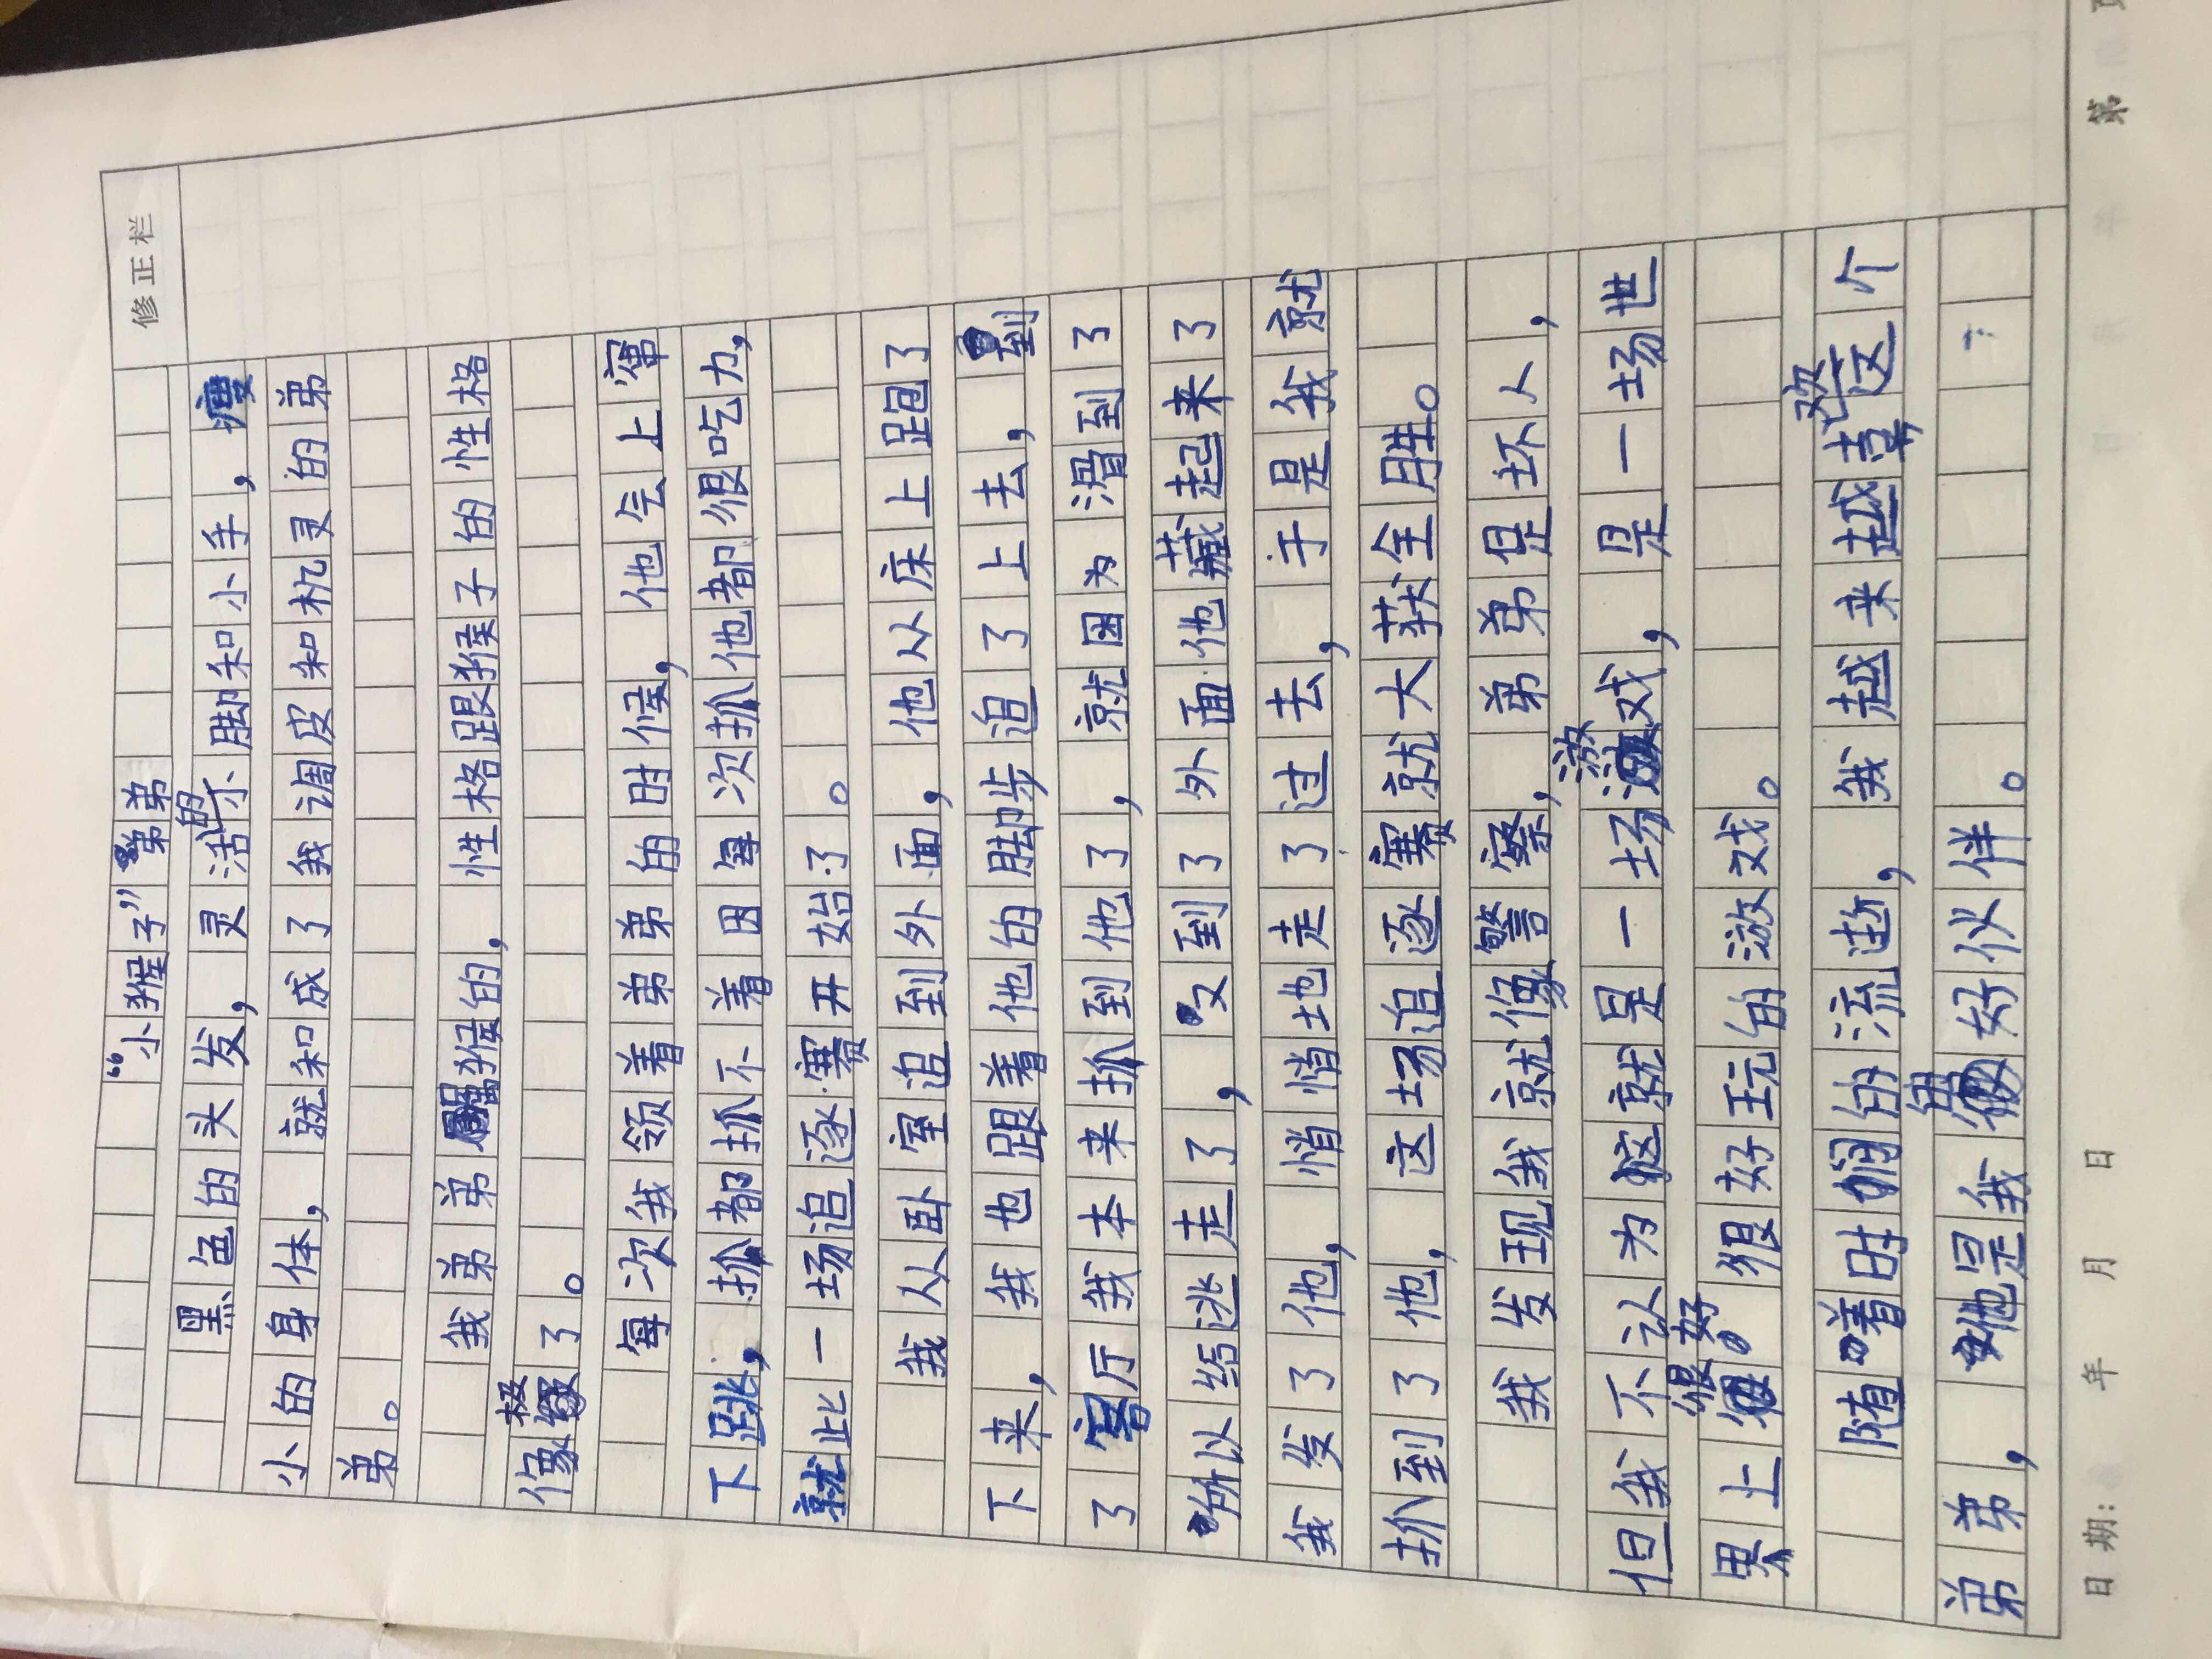 修正栏
“小猴子”弟弟
黑色的头发，灵活的小脚和小手，瘦
小的身体，就和成了我调皮和机灵的弟
弟。
我弟弟属猴的，性格跟猴子的性格
像极了。
每次我领着弟弟的时候，他会上窜
下跳，抓都抓不着因每次抓他都很吃力，
就此一场追逐赛开始了。
我从卧室追到外面，他从床上跑了
下来，我也跟着他的脚步追了上去，到
了客厅我本来抓到他了，就因为滑到了
所以给逃走了，又到了外面他藏起来了
我发了他，悄悄地走了过去，于是我就
抓到了他，这场追逐赛就大获全胜。
我发现我就像警察，弟弟是坏人，
但我不认为这就是一场游戏，是一场世
界上很好很好玩的游戏。
随着时间的流逝，我越来越喜欢这个
弟弟，他是我的好伙伴。
日期： 年 月 日 第 页